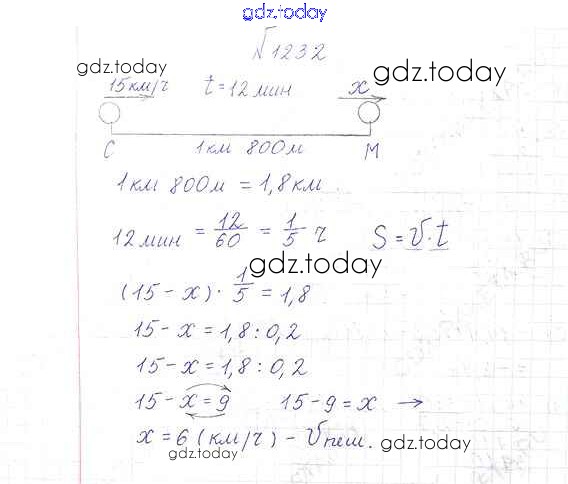 gdz.today
№1232
gdz.today gdz.today
15км/ч t=12мин x
С 1км 800м М
1км 800м = 1,8км
12мин = 12/60 = 1/5 ч S=v·t
gdz.today
(15-x)·1/5=1,8
15-x=1,8:0,2
15-x=1,8:0,2
15-x=9 15-9=x →
x=6(км/ч)-vпеш.
gdz.today gdz.today